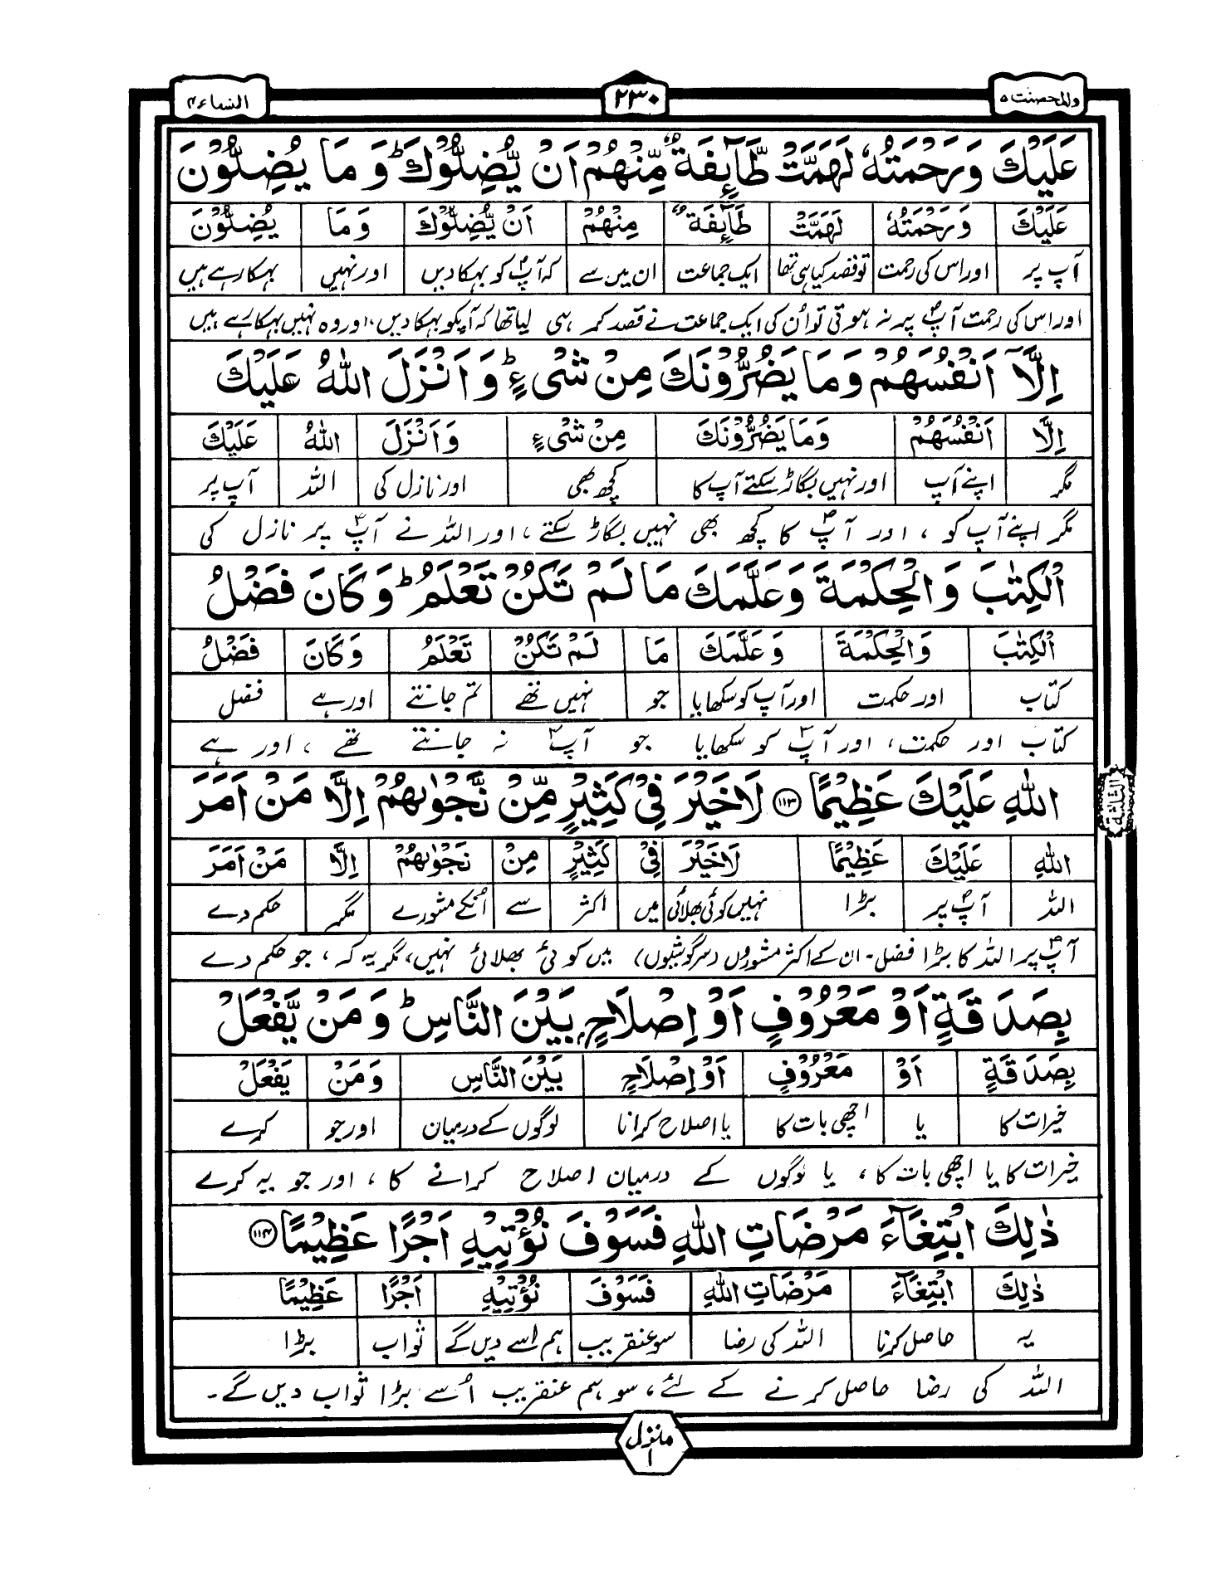 والمحصنت ۵
۲۳۰
النساء ۴
عَلَيْكَ وَرَحْمَتُهٗ لَهَمَّتْ طَّآئِفَةٌ مِّنْهُمْ اَنْ يُّضِلُّوْكَ ؕ وَ مَا يُضِلُّوْنَ
عَلَيْكَ وَرَحْمَتُهٗ لَهَمَّتْ طَّآئِفَةٌ مِنْهُمْ اَنْ يُّضِلُّوْكَ وَ مَا يُضِلُّوْنَ
آپ پر اور اس کی رحمت تو قصد کیا ہی تھا ایک جماعت ان میں سے کہ آپؐ کو بہکا دیں اور نہیں بہکا رہے ہیں
اور اس کی رحمت آپؐ پر نہ ہوتی تو اُن کی ایک جماعت نے قصد کر ہی لیا تھا کہ آپکو بہکا دیں، اور وہ نہیں بہکا رہے ہیں
اِلَّاۤ اَنْفُسَهُمْ وَ مَا يَضُرُّوْنَكَ مِنْ شَیْءٍ ؕ وَ اَنْزَلَ اللّٰهُ عَلَيْكَ
اِلَّا اَنْفُسَهُمْ وَ مَا يَضُرُّوْنَكَ مِنْ شَیْءٍ وَ اَنْزَلَ اللّٰهُ عَلَيْكَ
مگر اپنے آپ اور نہیں بگاڑ سکتے آپ کا کچھ بھی اور نازل کی اللہ آپ پر
مگر اپنے آپ کو ، اور آپؐ کا کچھ بھی نہیں بگاڑ سکتے ، اور اللہ نے آپؐ پر نازل کی
الْكِتٰبَ وَ الْحِكْمَةَ وَ عَلَّمَكَ مَا لَمْ تَكُنْ تَعْلَمُ ؕ وَ كَانَ فَضْلُ
الْكِتٰبَ وَالْحِكْمَةَ وَ عَلَّمَكَ مَا لَمْ تَكُنْ تَعْلَمُ وَ كَانَ فَضْلُ
کتاب اور حکمت اور آپ کو سکھایا جو نہیں تھے تم جانتے اور ہے فضل
کتاب اور حکمت، اور آپؐ کو سکھایا جو آپؐ نہ جانتے تھے ، اور ہے
اللّٰهِ عَلَيْكَ عَظِيْمًا ﴿۱۱۳﴾ لَا خَيْرَ فِیْ كَثِيْرٍ مِّنْ نَّجْوٰىهُمْ اِلَّا مَنْ اَمَرَ
اللّٰهِ عَلَيْكَ عَظِيْمًا لَاخَيْرَ فِیْ كَثِيْرٍ مِنْ نَجْوٰىهُمْ اِلَّا مَنْ اَمَرَ
اللہ آپؐ پر بڑا نہیں کوئی بھلائی میں اکثر سے انکے مشورے مگر حکم دے
آپؐ پر اللہ کا بڑا فضل ۔ ان کے اکثر مشوروں (سرگوشیوں) میں کوئی بھلائی نہیں، مگر یہ کہ ، جو حکم دے
الثلثة
بِصَدَقَةٍ اَوْ مَعْرُوْفٍ اَوْ اِصْلَاحٍۭ بَيْنَ النَّاسِ ؕ وَ مَنْ يَّفْعَلْ
بِصَدَقَةٍ اَوْ مَعْرُوْفٍ اَوْ اِصْلَاحٍ بَيْنَ النَّاسِ وَ مَنْ يَفْعَلْ
خیرات کا یا اچھی بات کا یا اصلاح کرانا لوگوں کے درمیان اور جو کرے
خیرات کا یا اچھی بات کا، یا لوگوں کے درمیان اصلاح کرانے کا ، اور جو یہ کرے
ذٰلِكَ ابْتِغَآءَ مَرْضَاتِ اللّٰهِ فَسَوْفَ نُؤْتِيْهِ اَجْرًا عَظِيْمًا ﴿۱۱۴﴾
ذٰلِكَ ابْتِغَآءَ مَرْضَاتِ اللّٰهِ فَسَوْفَ نُؤْتِيْهِ اَجْرًا عَظِيْمًا
یہ حاصل کرنا اللہ کی رضا سو عنقریب ہم اسے دیں گے ثواب بڑا
اللہ کی رضا حاصل کرنے کے لئے، سو ہم عنقریب اُسے بڑا ثواب دیں گے۔
منزل ۱